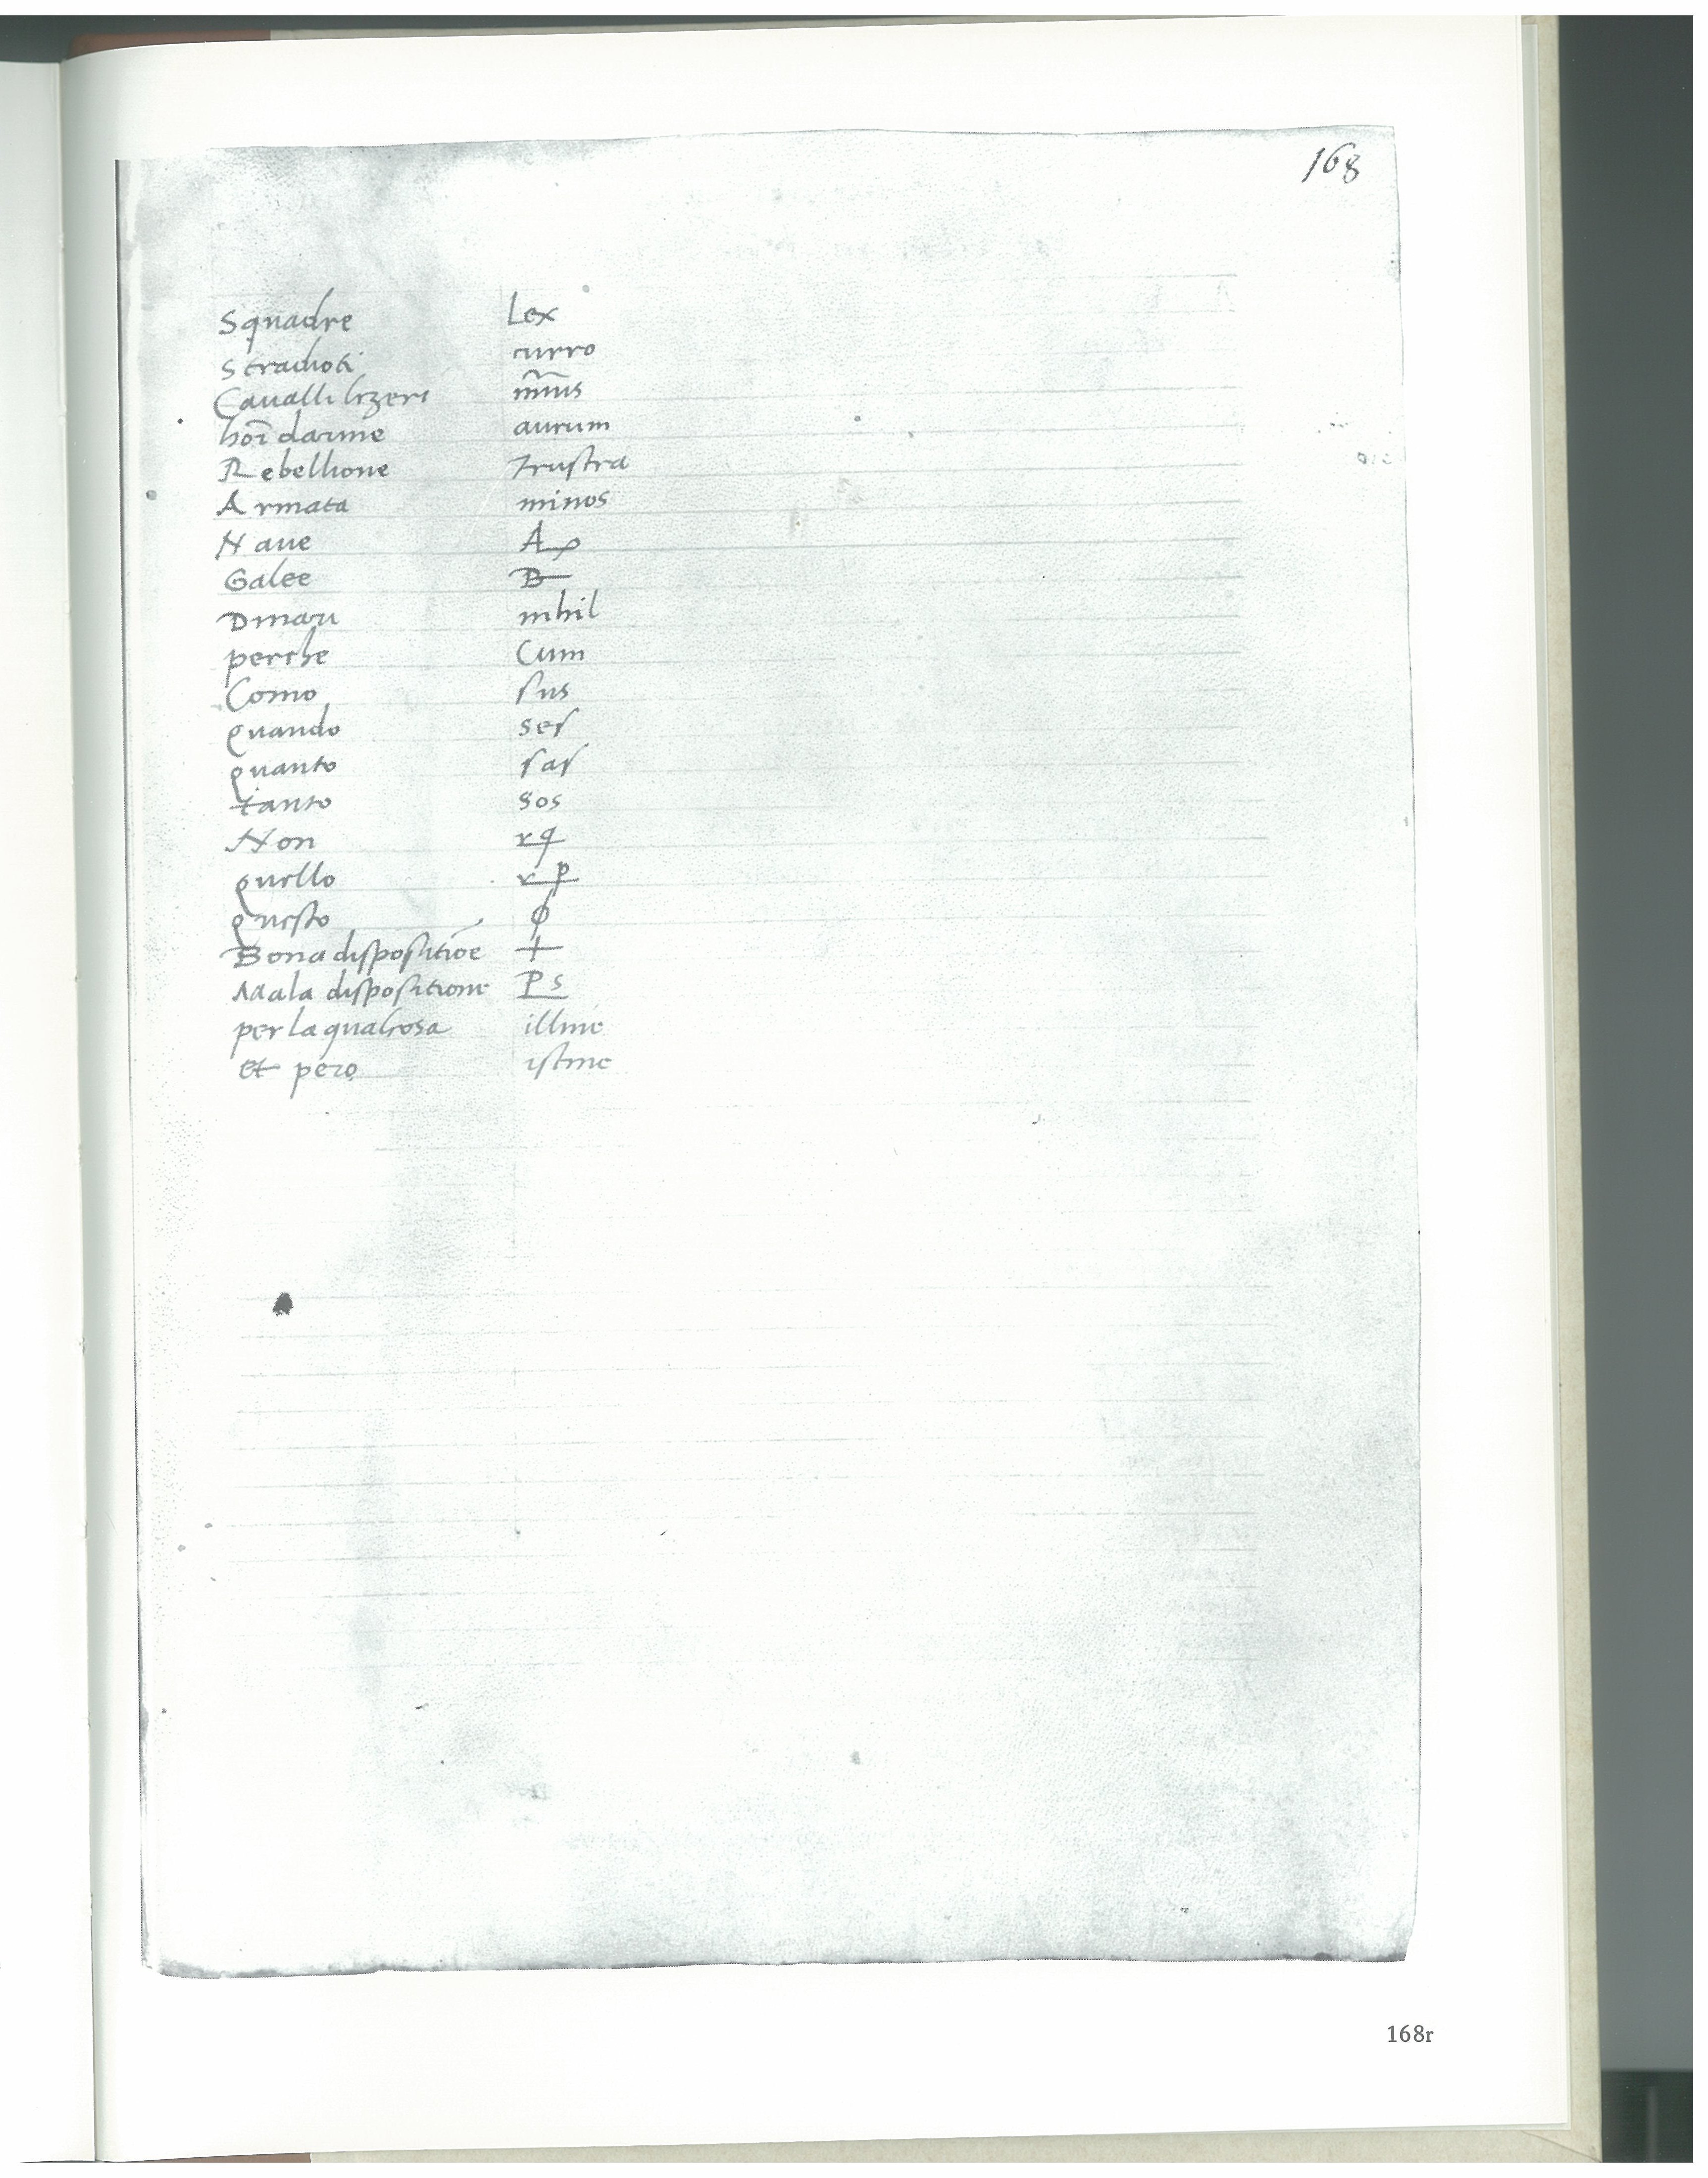 168
Squadre Lex
Stradioti curro
Cavalli lizeri
hoī darme aurum
Rebellione frustra
Armata minos
Nave A
Galee B
Dinari nihil
perche Cum
Como sus
quando ses
quanto sas
tanto sos
Non rq
quello rp
questo ϕ
Bona dispositiōe +
Mala dispositione Ps
per la qualcosa illinc
et pero istinc
168r